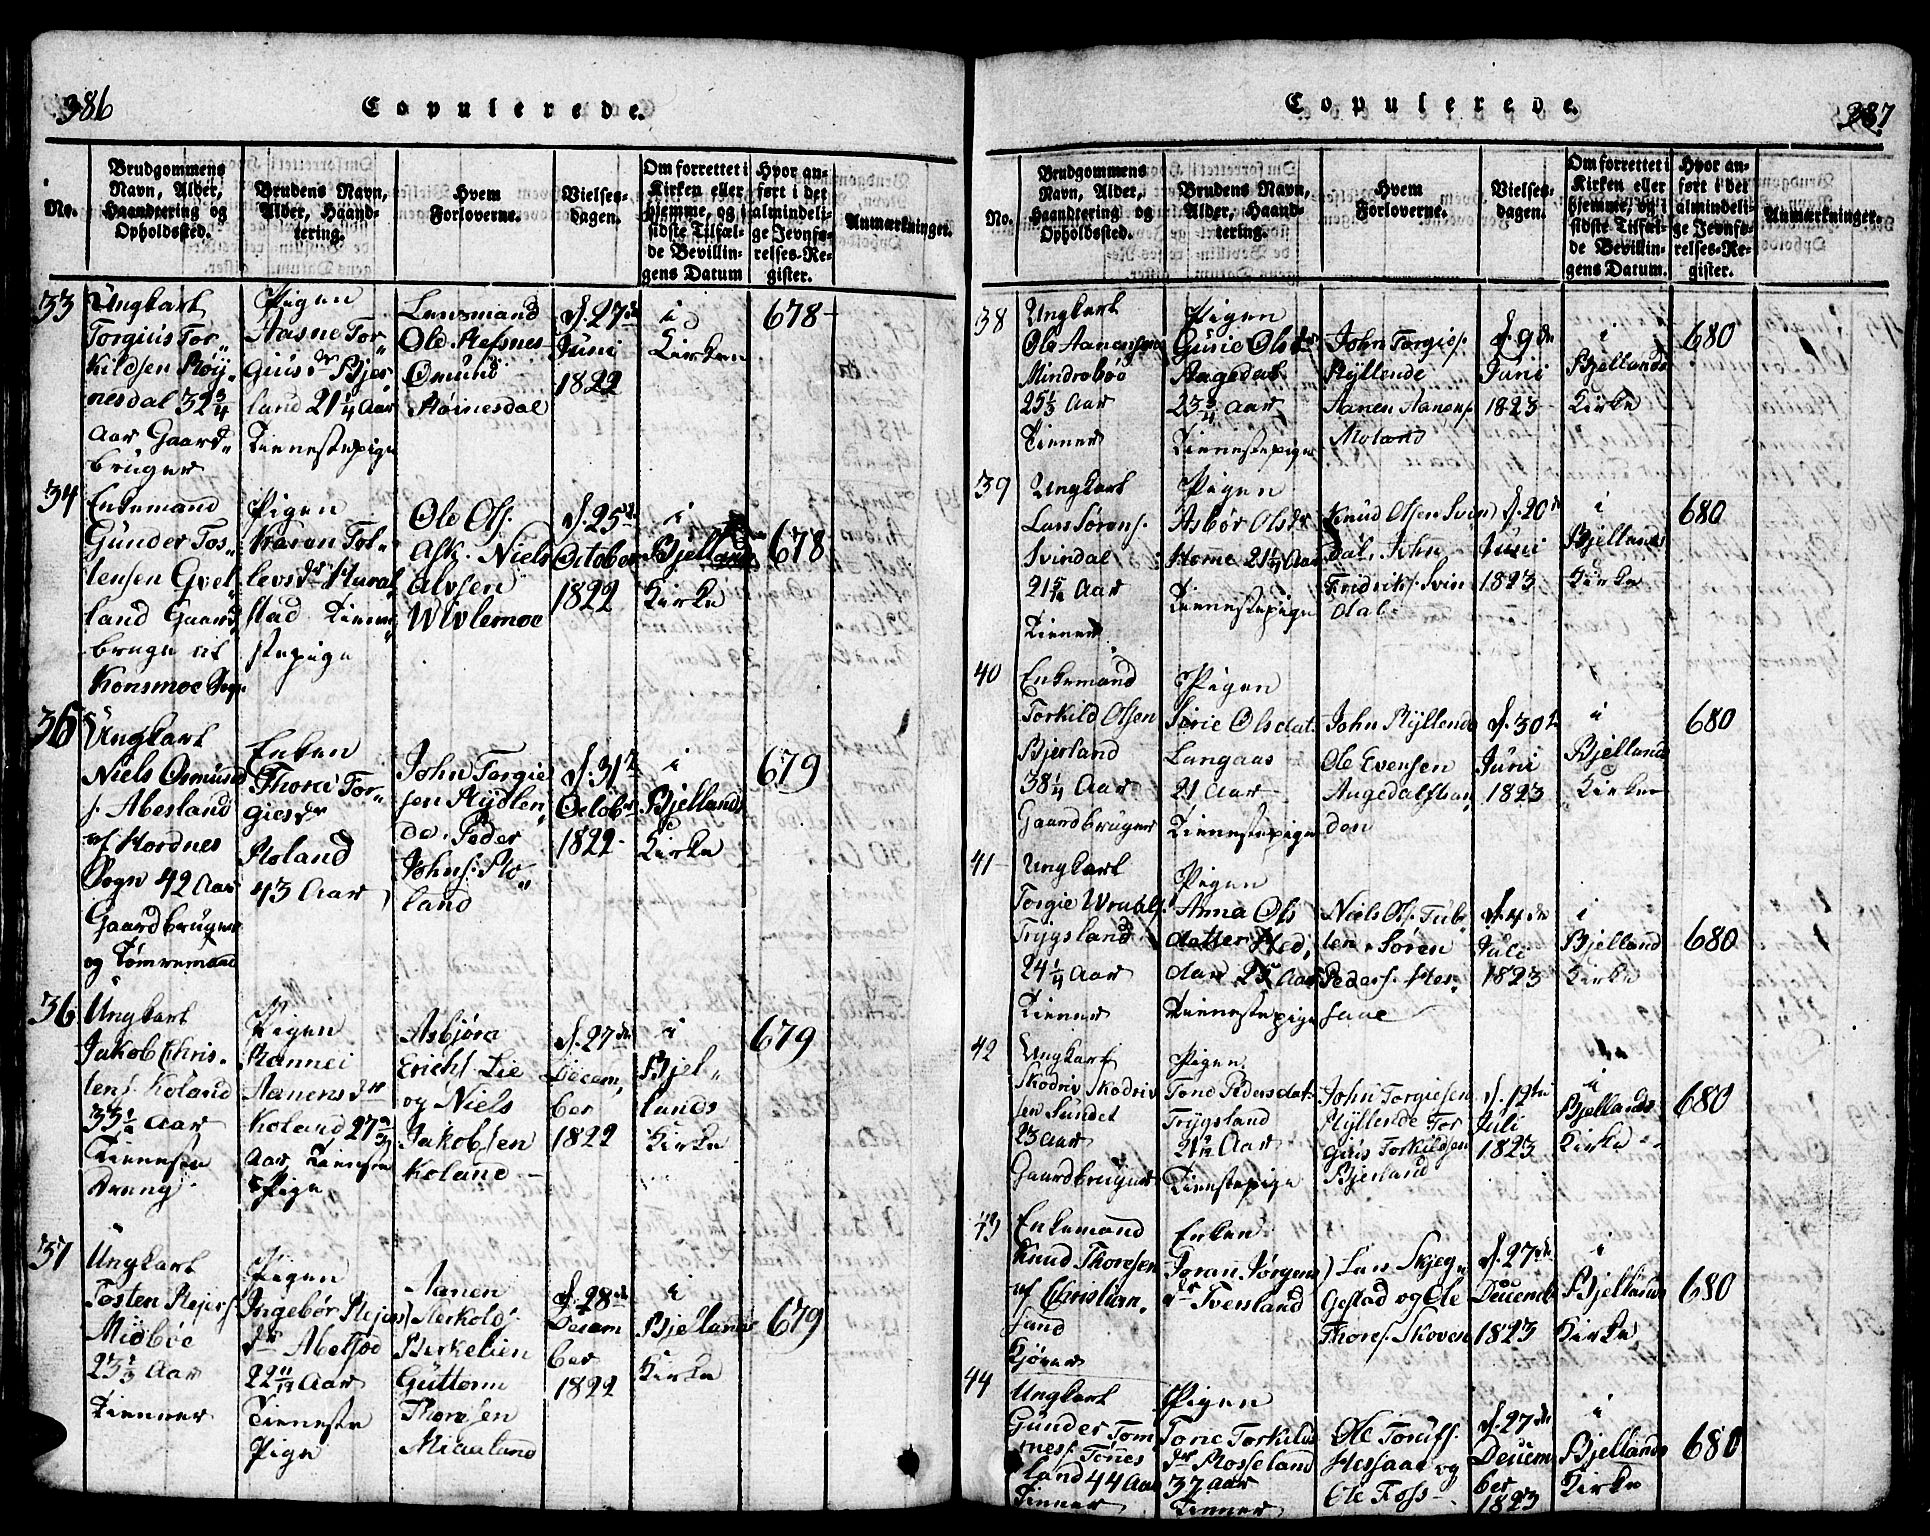 386
Copulerede.
No.
Brudgommens Navn, Alder, Haandtering og Opholdssted.
Brudens Navn, Alder, Haandtering.
Hvem Forloverne.
Vielsesdagen.
Om forrettet i Kirken eller hjemme, og i sidste Tilfælde Bevillingens Datum
Hvor anført i det almindelige Jevnførelses-Register.
Anmærkninger.
33
Ungkarl
Torgius Tor„
kildsen Røÿ„
nesdal 32 3/4
Aar Gaard„
bruger
Pigen
Aasne Tor„
Giusdr Bjer
land 21 1/4 Aar
Tienestepige
Lensmand
Ole Refsnes
Omund
Røinesdal
d. 27de
Juni
1822
i
Kirken
678
34
Enkemand
Günder Tos„
tensen Qvel„
land Gaard„
bruge at
Konsmoe Sogn
Pigen
Karen Tol„
levsdr Hural
stad Tiene„
stepige
Ole Ols.
Ask. Niels
Alvsen
Wivlemoe
d. 25de
October
1822
i
Bjellands
Kirke
678
36
Ungkarl
Niels Osmund
s. Abesland
af Hordnes
Sogn 42 Aar
Gaardbruger
og Tømremand
Enken
Thora Tor„
giesdr
Roland
43 Aar
John Torgie
sen Rydlen„
de. Peder
Johns. Ro„
land
d. 31te
Octobr
1822
i
Bjellands
Kirke
679
36
Ungkarl
Jakob Chris„
tens. Koland
33 1/2 Aar
Tieneste
Dreng
Pigen
Rannei
Aanensdr
Koland 27 2/3
Aar, Tieneste
Pige
Asbjørn
Erichs. Lie
og Niels
Jakobsen
Koland
d. 27de
Decem„
ber
1822
i
Bjel„
lands
Kirke
679
37
Ungkarl
Tosten Rejers.
Midbøe
23 1/3 Aar
Tiener
Pigen
Ingebor Rejers
dr Abelsød
22 11/12 Aar
Tieneste
Pige
Aanen
Herkolds.
Birkelien
Güttorm
Thorsen
Miauland
d. 28de
Decem
ber
1822
i
Bjellands
Kirke
679
387
Copulerede.
No.
Brudgommens Navn, Alder, Haandtering og Opholdssted.
Brudens Navn, Alder, Haandtering.
Hvem Forloverne.
Vielsesdagen.
Om forrettet i Kirken eller hjemme, og i sidste Tilfælde Bevillingens Datum.
Hvor anført i det almindelige Jevnførelses-Register.
Anmærkninger.
38
Ungkarl
Ole Aanensen
Mindrebøe
25 1/3 Aar
Tiener
Pigen
Gurie Olsdr
Aagedal
23 3/4 Aar
Tienestepige
John Torgies.
Ryllende
Aanen Aanens
Moland
d. 9de
Juni
1823
i
Bjellands
Kirke
680
39
Ungkarl
Lars Sørens.
Svindal
21 Aar
Tiener
Pigen
Asbør Olsdr
Home 21 1/4 Aar
Tienestepige
Knud Olsen Svin
dal. John
Fridriks. Svin
dal
d. 20de
Juni
1823
i
Bjellands
Kirke
680
40
Enkemand
Torkild Olsen
Bjerland
38 1/4 Aar
Gaardbruger
Pigen
Sirie Olsdat.
Langaas
21 Aar
Tienestepige
John Ryllende
Ole Evensen
Aagedalsban„
den
d. 30te
Juni
1823
i
Bjellands
Kirke
680
41
Ungkarl
Torgie Wrals.
Trygsland
24 1/4 Aar
Tiener
Pigen
Anna Ols
datter Hed„
dan 25 Aar
Tienestepige
Niels Ols. Tub„
len. Søren
Peders. Her„
faae
d. 4de
Juli
1823
i
Bjelland
Kirke
680
42
Ungkarl
Skodriv Skodriv
sen Sundet
23 Aar
Gaardbruger
Pigen
Tone Pedersdat.
Trygsland
21 1/2 Aar
Tienestepige
John Torgiesen
Ryllende Tor
giüs Torkildsen
Bjerland
d. 12te
Juli
1823
i
Bjellands
Kirke
680
43
Enkemand
Knud Thoresen
af Christian„
sand
Kjører
Enken
Joran Jørgens
dr Tversland
Lars Skjeg„
Gestad og Ole
Thores. Skoven
d. 27de
Decemb
1823
i
Bjellands
Kirke
680
44
Ungkarl
Günder Tom
mes. Tønes
land 44 Aar
Tiener
Pigen
Tone Torkilds
dr Mosseland
37 Aar
Tiener
Ole Toruls.
Hessaae og
Ole Foss
d. 27de
Decem
ber
1823
i
Bjellands
Kirke
680